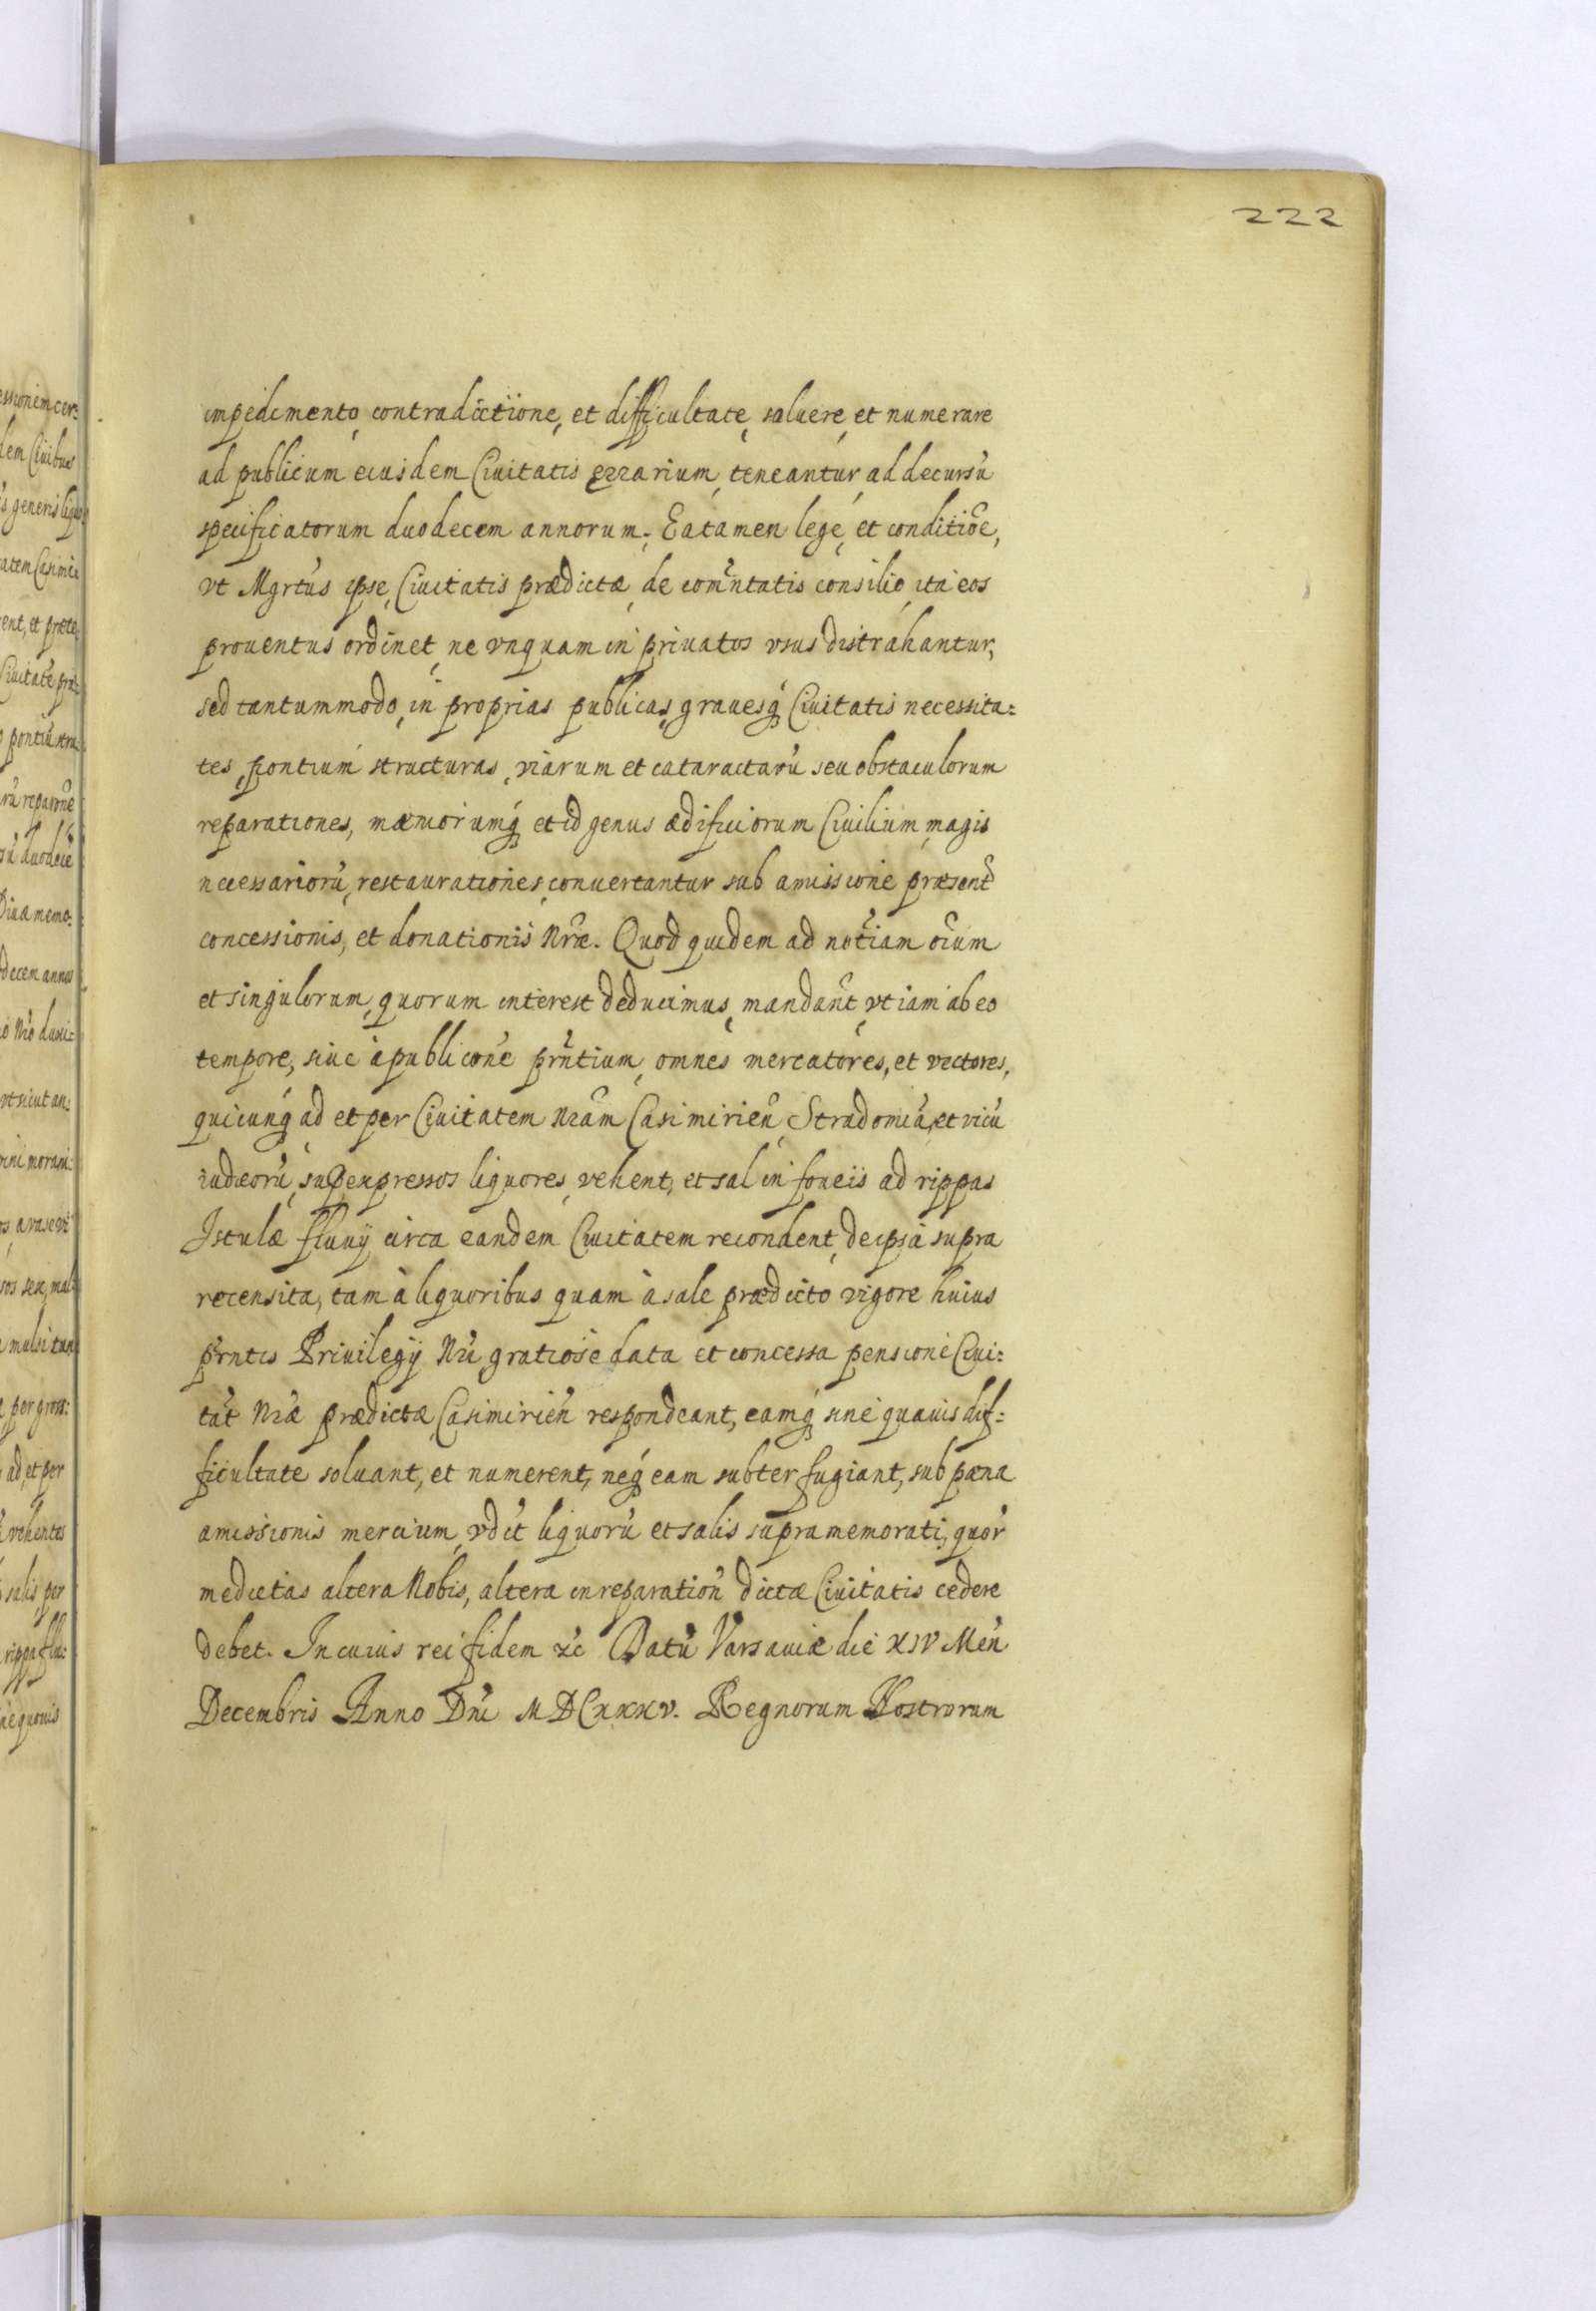 222
impedimento, contradictione, et difficultate, soluere, et numerare
ad publicum eiusdem Ciuitatis ęrrarium, teneantur, ad decursũ
specificatorum duodecem annorum; Ea tamen lege, et conditiõe,
vt Mgrtũs ipse, Ciuitatis prædictæ, de com̃ntatis consilio, ita eos
prouentus ordinet, ne vnquam in priuatos vsus distrahantur,
sed tantummodo, in proprias publicas, grauesq́ Ciuitatis necessita=
tes, pontium structuras, viarum et cataractarũ seu obstaculorum
reparationes, mæniorumq́ et id genus ædificiorum Ciuilium, magis
necessariorũ, restaurationes, conuertantur sub amissione præsent̃
concessionis, et donationis Nr̃æ. Quod quidem ad not̃iam oĩum
et singulorum, quorum interest deducimus, mandañt, vt iam ab eo
tempore, siue à publicõne pr̃ntium, omnes mercatores, et vectores,
quicunq́ ad et per Ciuitatem Nr̃am Casimirieñ, Stradomiã, et vicũ
iudæorũ, supexpressos liquores, vehent, et sal in foueis ad rippas
Istulæ fluuÿ circa eandem Ciuitatem recondent, de ipsa supra
recensita, tam à liquoribus quam à sale prædicto vigore huius
pr̃ntis PriuilegÿNr̃i, gratiose data et concessa pensione Ciui=
tat̃ Nr̃æ prædictæ, Casimirieñ respondeant, eamq́ sine quauis dif=
ficultate soluant, et numerent, neq́ eam subterfugiant, sub pæna
amissionis mercium, vdit liquorũ et salis supramemorati, quor̃
medietas altera Nobis, altera in reparatioñ dictæ Ciuitatis cedere
debet. In cuius rei fidem &c Datũ Varsauiæ die XIV Meñ
Decembris Anno Dñi MDCXXXV. Regnorum Nostrorum